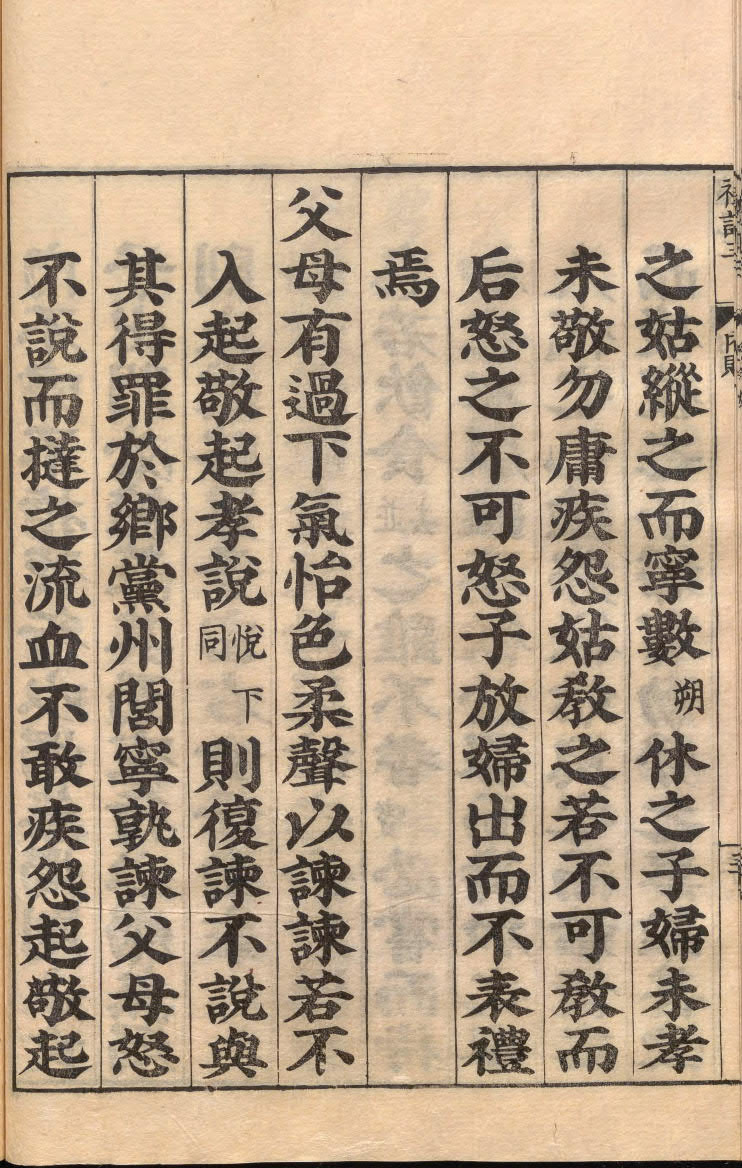 之姑縱之而寧數朔休之子婦未孝
未敬勿庸疾怨姑敎之若不可敎而
后怒之不可怒子放婦出而不表禮
焉
父母有過下氣怡色柔聲以諫諫若不
入起敬起孝說悅下同則復諫不說與
其得罪於鄉黨州閭寧孰諫父母怒
不說而撻之流血不敢疾怨起敬起